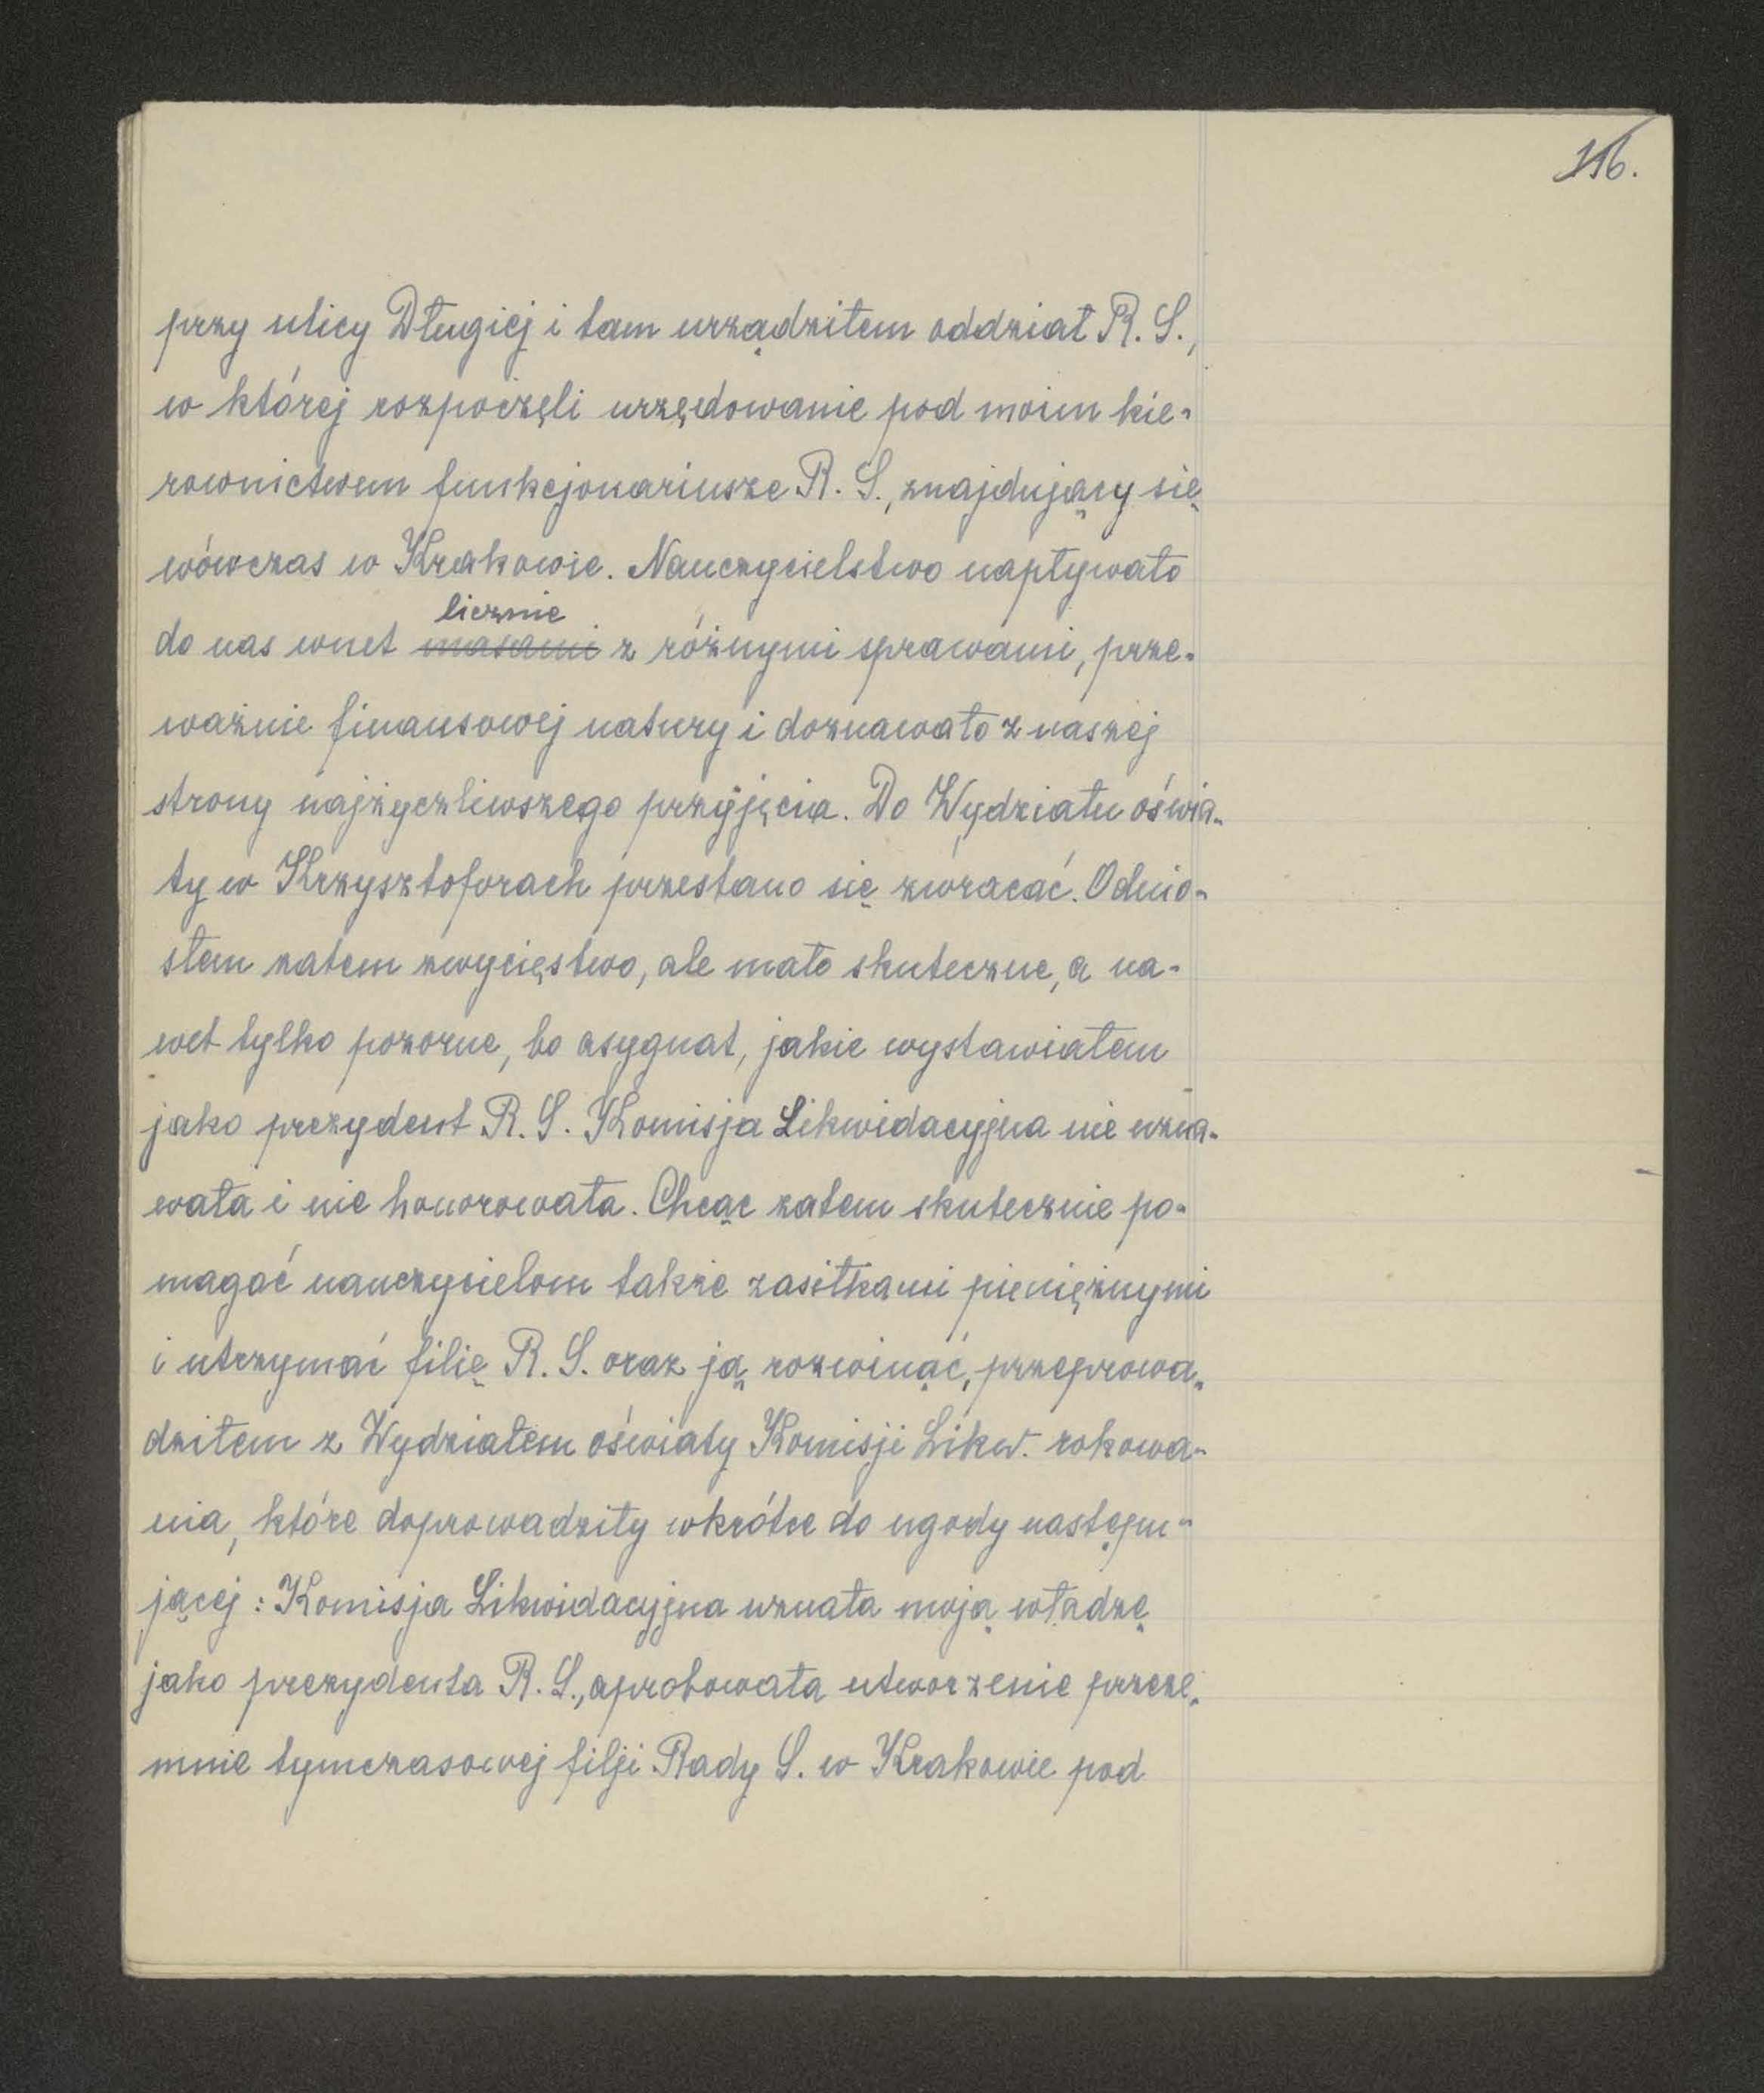 116.
przy ulicy Długiej i tam urządziłem oddział R. S.,
w której rozpoczęli urzędowanie pod moim kie-
rownictwem funkcjonariusze R. S., znajdujący się
wówczas w Krakowie. Nauczycielstwo napływało
licznie
do nas wnet masami z różnymi sprawami, prze-
ważnie finansowej natury i doznawało z naszej
strony najżyczliwszego przyjęcia. Do Wydziału oświa-
ty w Krzysztoforach przestano się zwracać. Odnio-
słem zatem zwycięstwo, ale mało skuteczne, a na-
wet tylko pozorne, bo asygnat, jakie wystawiałem
jako prezydent R. S. Komisja Likwidacyjna nie uzna-
wała i nie honorowała. Chcąc zatem skutecznie po-
magać nauczycielom także zasiłkami pieniężnymi
i utrzymać filię R. S. oraz ją rozwinąć, przeprowa-
dziłem z Wydziałem oświaty Komisji Likw. rokowa-
nia, które doprowadziły wkrótce do ugody następu-
jącej: Komisja Likwidacyjna uznała moją władzę
jako prezydenta R. S., aprobowała utworzenie przeze-
mnie tymczasowej filji Rady S. w Krakowie pod